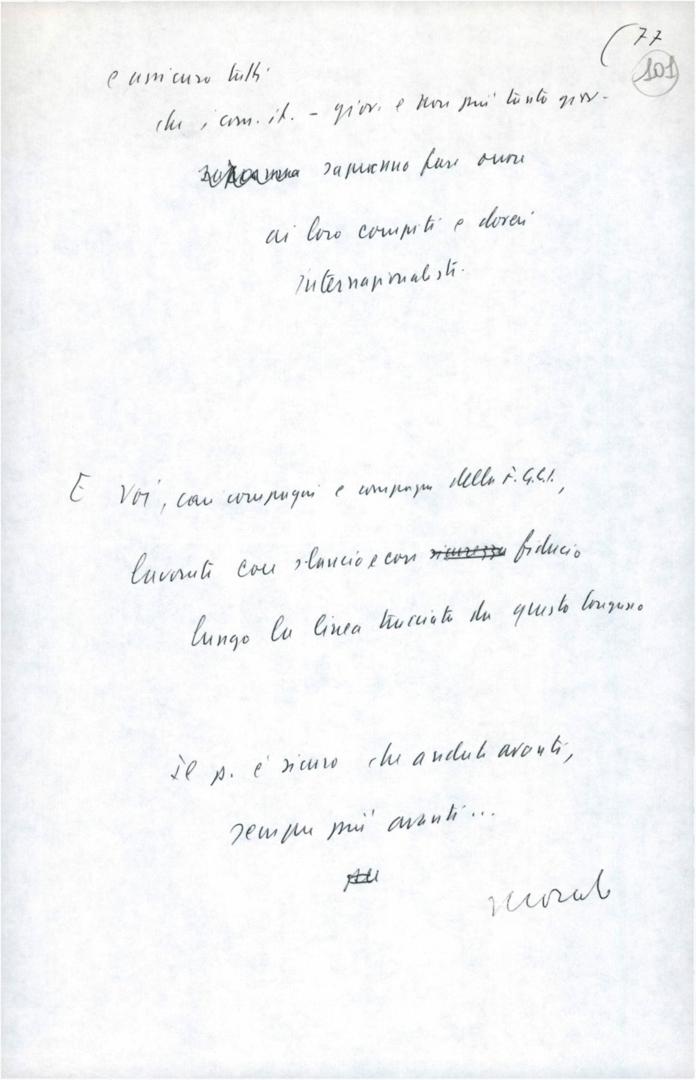 77
101
e assicuro tutti
che i com. it. - giov. e non più tanto giov. -
sapranno fare onore
ai loro compiti e doveri
internazionalisti.
E Voi, cari compagni e compagne della F.G.C.I.,
lavorate con slancio e con sicurezza fiducia
lungo la linea tracciata da questo Congresso
Il p. è sicuro che andrete avanti,
sempre più avanti...